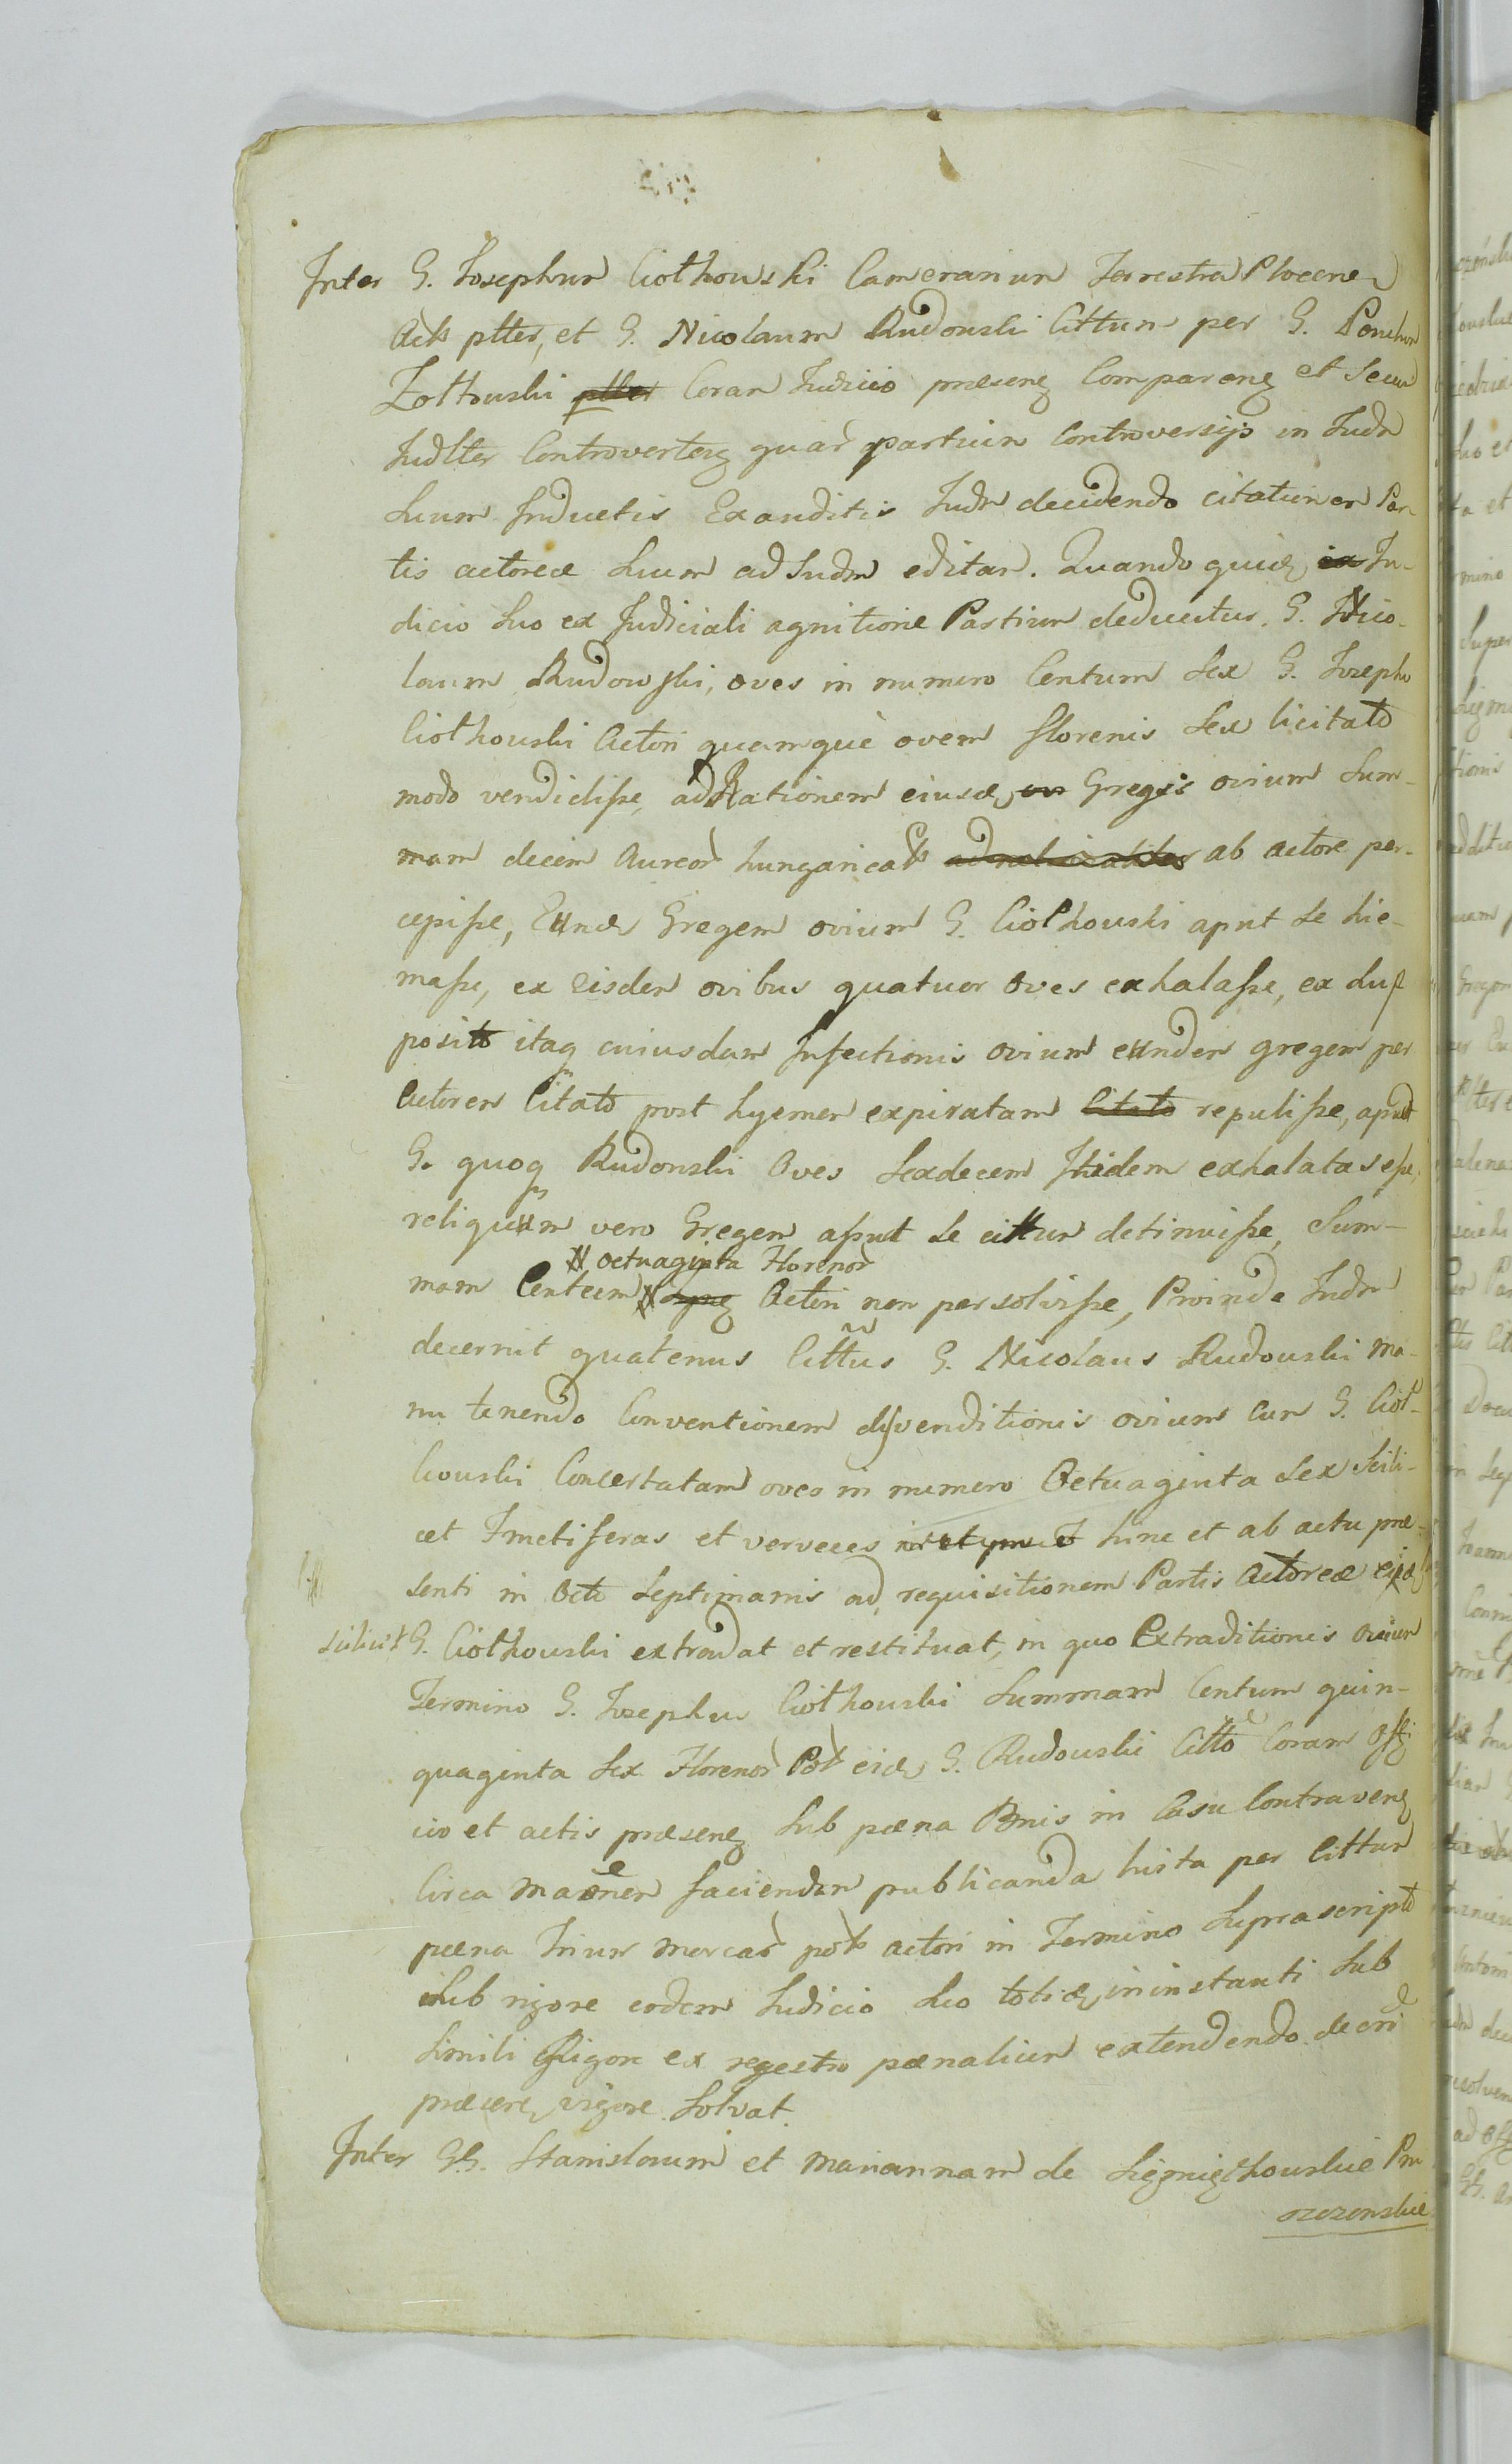 Inter G. Josephum Ciołkowski Camerarium Terrestrem Plocens
Act⁰ʳ plter, et G. Nicolaum Rudowski Cittum per G. Paulum
Zołtowski Coram Judicio praesenꝫ Comparenꝫ et Secum
Judlter Controvertenꝫ quar partium Controversijs in Judm
Suum Inductis Exauditis Judm decidendo citationem Par-
tis actoreae Suum ad Judm editam. Quando quidꝫ Ju-
dicio Suo ex Judiciali agnitione Partium deducitur. G. Nico-
laum Rudowski, oves in numero Centum Sex G. Josepho
Ciołkowski Actori quamque ovem florenis Sex licitato
modo vendidisse, ad Rationem eiusdꝫ Gregis ovium Sum-
mam decem Aureor hungarical ab actore per-
cepisse, Eundꝫ Gregem ovium G. Ciołkowski aput Se hie-
masse, ex eisdem ovibus quatuor Oves exhalasse, ex Sup
posito itaq cuiusdam Infectionis ovium eundem gregem per
Actorem Citato post hyemem expiratam repulisse, apud
G. quoq Rudowski Oves Sexdecem Itidem exhalatas esse,
reliquum vero Gregem aput Se cittum detinuisse, Sum-
# octuaginta Florenor
mam Centum # Actori non persolvisse, Proinde Judm
decernit quatenus Cittus G. Nicolaus Rudowski ma-
nu tenendo Conventionem disvenditionis ovium cum G. Cioł-
kowski Concertatam oves in numero Octuaginta Sex Scili-
cet Fructiferas et verveces hinc et ab actu prae-
senti in Octo Septimanis ad requisitionem Partis Actoreae
Scilicet G. Ciołkowski extradat et restituat, in quo Extraditionis ovium
Termino G. Josephus Ciołkowski Summam Centum quin-
quaginta Sex Florenor Pol eidꝫ G. Rudowski Citto Coram Offi
cio et actis praesenꝫ Sub paena Bnis in Casu Contravenꝫ
Circa faciendam publicanda luita per Cittum
paena trium marcar pol actori in Termino Suprascripto
Sub rigore eodem Judicio Suo totidꝫ in instanti Sub
Simili Rigore ex regestro paenalium extendendo decri
praesenꝫ vigore Solvat.
Inter GG. Stanislaum et Mariannam de